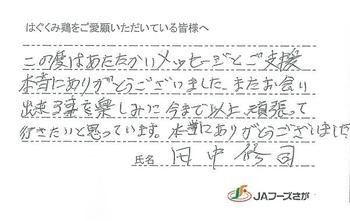 はぐくみ鶏をご愛顧いただいている皆様へ
この度はあたたかいメッセージとご支援
本当にありがとうございました。またお会い
出来る事を楽しみに今まで以上頑張って
行きたいと思っています。本当にありがとうございました
氏名 田中修司
JAフーズさが